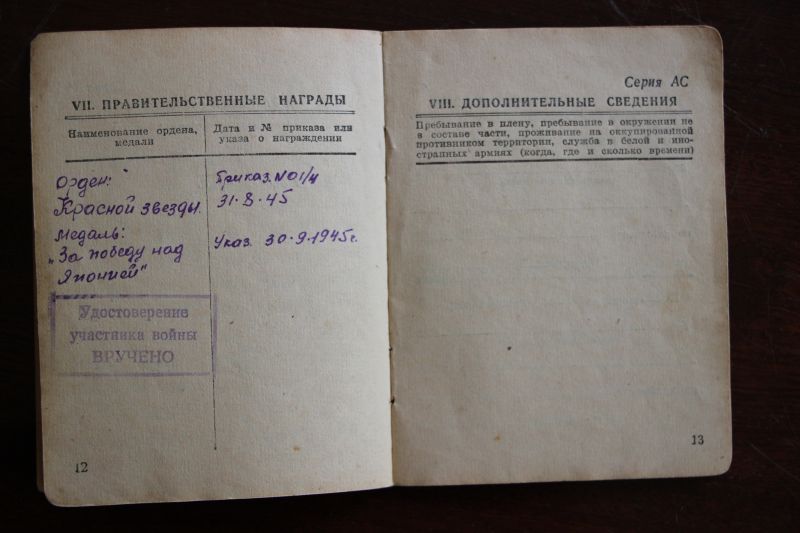 VII. ПРАВИТЕЛЬСТВЕННЫЕ НАГРАДЫ
Наименование ордена, медали
Дата и № приказа или указа о награждении
Орден:
Красной звезды.
Приказ. №01/н
31.8.45
Медаль:
„За победу над
Японией“
Указ. 30.9.1945г.
Удостоверение
участника войны
ВРУЧЕНО
12
Серия АС
VIII. ДОПОЛНИТЕЛЬНЫЕ СВЕДЕНИЯ
Пребывание в плену, пребывание в окружении не
в составе части, проживание на оккупированной
противником территории, служба в белой и ино-
странных армиях (когда, где и сколько времени)
13